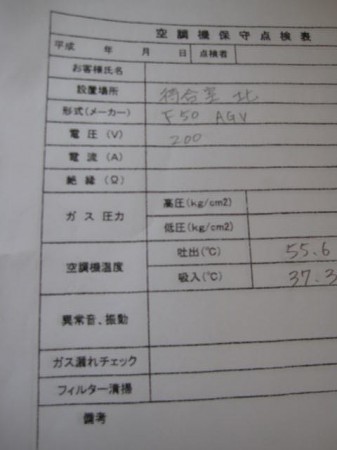 空調機保守点検表
平成 年 月 日 点検者
お客様氏名
設置場所 待合室 北
形式(メーカー) F50 AGV
電圧(V) 200
電流(A)
絶縁(Ω)
ガス圧力 高圧(kg/cm2)
低圧(kg/cm2)
空調機温度 吐出(℃) 55.6
吸入(℃) 37.3
異常音、振動
ガス漏れチェック
フィルター清掃
備考